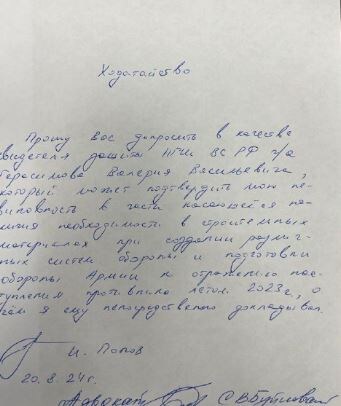 Ходатайство
Прошу Вас допросить в качестве
свидетеля НГШ ВС РФ г/а
Герасимова Валерия Васильевича,
который может подтвердить мою не-
виновность в части касающейся
необходимости в строительных
материалах при создании различ-
ных систем обороны и подготовки
обороны Армии к отражению нас-
тупления противника летом 2023г, о
чём я ему непосредственно докладывал.
И. Попов
20.8.24г.
Адвокат С.В.